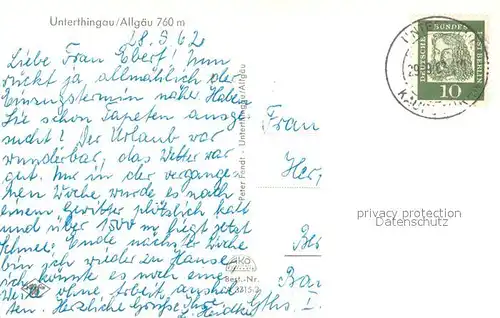 Unterthingau/Allgäu 760 m
28.9.62
Liebe Frau Ebert! Nun
rückt ja allmählich der
Einzugstermin näher. Haben
Sie schon Tapeten ausge
sucht! Der Urlaub war
wunderbar, das Wetter war
gut. Nur in der vergange
nen Woche wurde es nach
einem Gewitter plötzlich kalt
und über 1500 m liegt jetzt
Schnee. Ende nächster Woche
bin ich wieder zu Hause.
Ich könnte es noch eine
Weile ohne Arbeit aushal
ten. Herzliche Grüße Ihre
Peter Fendt - Unterthingau/Allgäu
Best.-Nr.
DEUTSCHE BUNDESPOST BERLIN
10
Frau
Her
privacy protection
Datenschutz